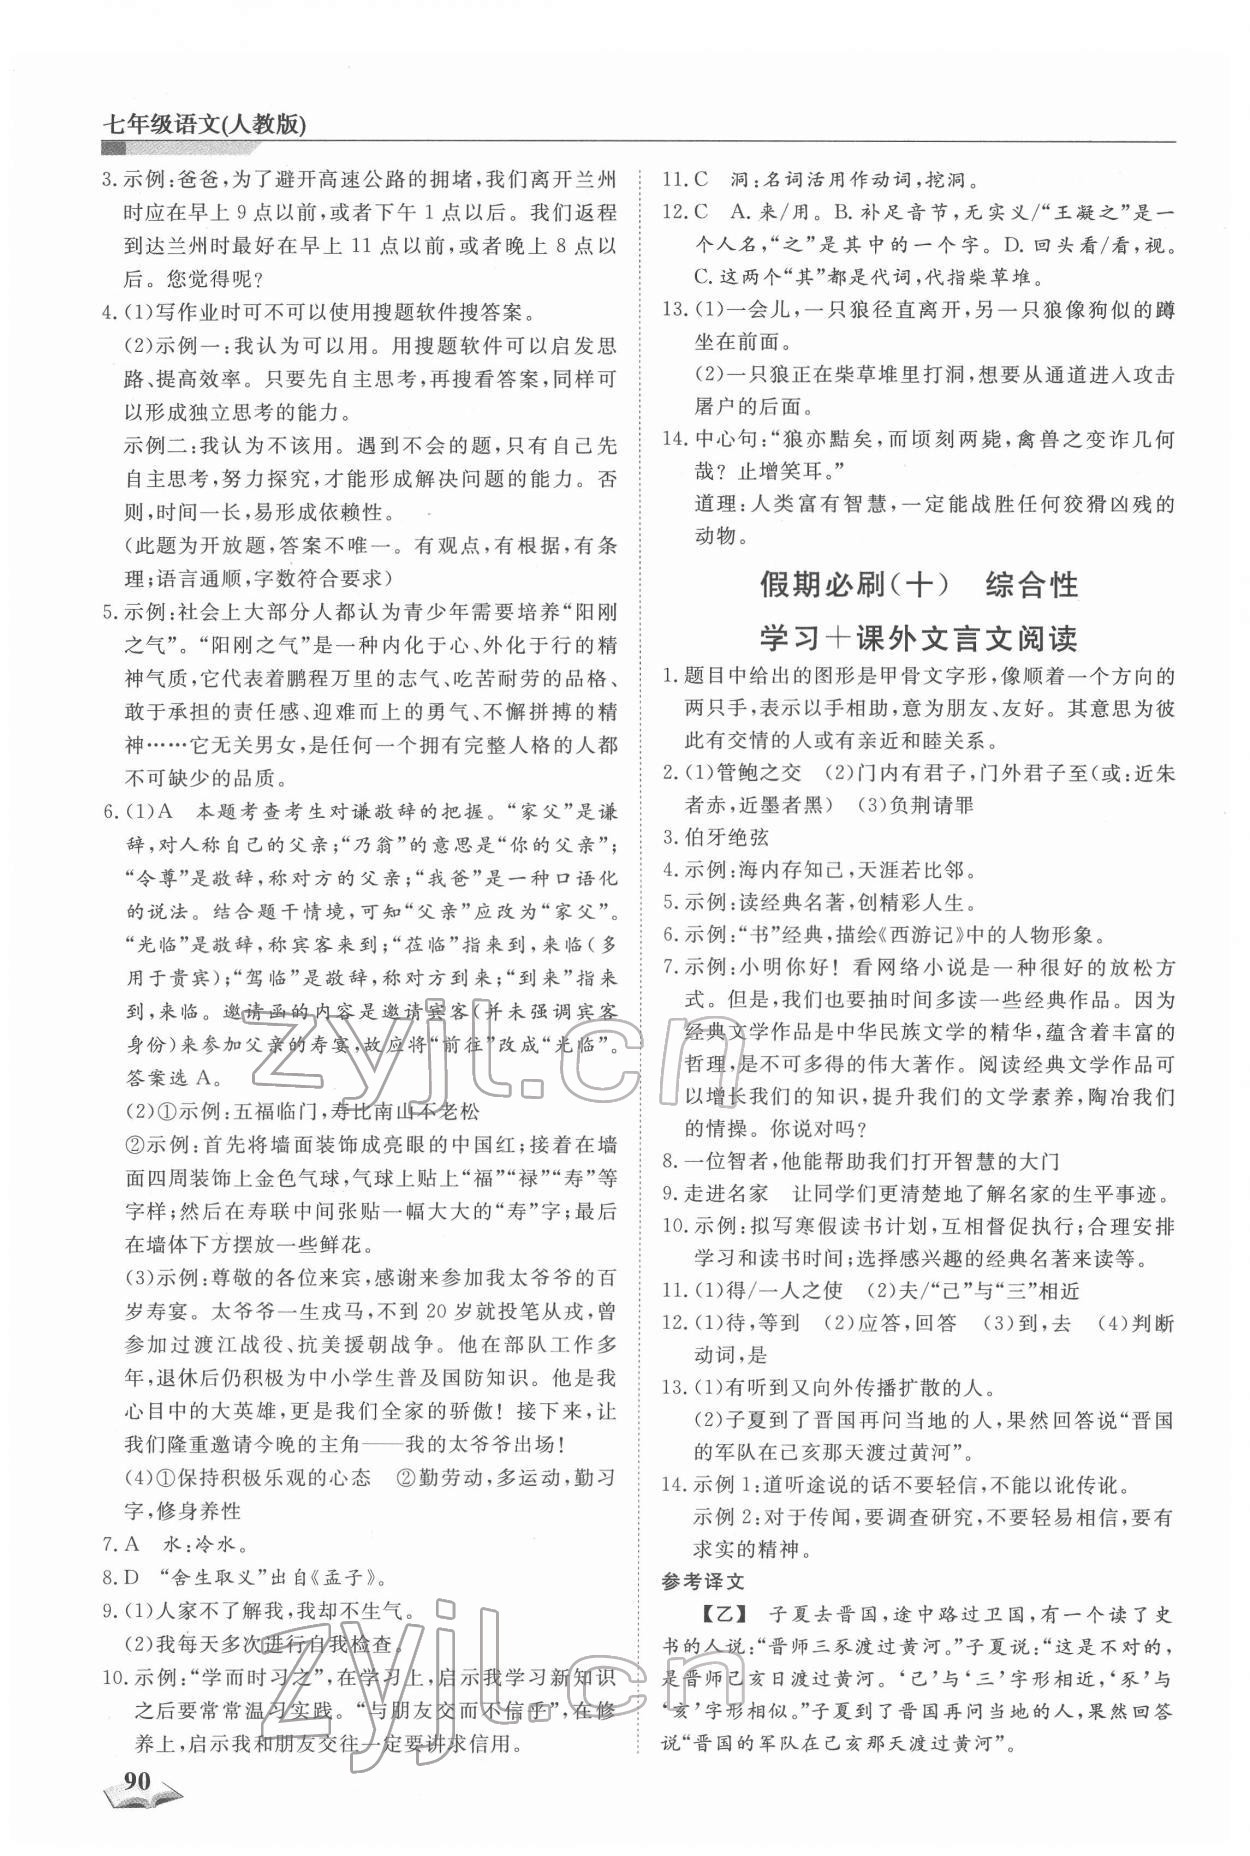 七年级语文(人教版)
3. 示例:爸爸,为了避开高速公路的拥堵,我们离开兰州
时应在早上 9 点以前,或者下午 1 点以后。我们返程
到达兰州时最好在早上 11 点以前,或者晚上 8 点以
后。您觉得呢?
4. (1)写作业时可不可以使用搜题软件搜答案。
(2)示例一:我认为可以用。用搜题软件可以启发思
路、提高效率。只要先自主思考,再搜看答案,同样可
以形成独立思考的能力。
示例二:我认为不该用。遇到不会的题,只有自己先
自主思考,努力探究,才能形成解决问题的能力。否
则,时间一长,易形成依赖性。
(此题为开放题,答案不唯一。有观点,有根据,有条
理;语言通顺,字数符合要求)
5. 示例:社会上大部分人都认为青少年需要培养“阳刚
之气”。“阳刚之气”是一种内化于心、外化于行的精
神气质,它代表着鹏程万里的志气、吃苦耐劳的品格、
敢于承担的责任感、迎难而上的勇气、不懈拼搏的精
神……它无关男女,是任何一个拥有完整人格的人都
不可缺少的品质。
6. (1)A 本题考查考生对谦敬辞的把握。“家父”是谦
辞,对人称自己的父亲;“乃翁”的意思是“你的父亲”;
“令尊”是敬辞,称对方的父亲;“我爸”是一种口语化
的说法。结合题干情境,可知“父亲”应改为“家父”。
“光临”是敬辞,称宾客来到;“莅临”指来到,来临(多
用于贵宾);“驾临”是敬辞,称对方到来;“到来”指来
到,来临。邀请函的内容是邀请宾客(并未强调宾客
身份)来参加父亲的寿宴,故应将“前往”改成“光临”。
答案选 A。
(2)①示例:五福临门,寿比南山不老松
②示例:首先将墙面装饰成亮眼的中国红;接着在墙
面四周装饰上金色气球,气球上贴上“福”“禄”“寿”等
字样;然后在寿联中间张贴一幅大大的“寿”字;最后
在墙体下方摆放一些鲜花。
(3)示例:尊敬的各位来宾,感谢来参加我太爷爷的百
岁寿宴。太爷爷一生戎马,不到 20 岁就投笔从戎,曾
参加过渡江战役、抗美援朝战争。他在部队工作多
年,退休后仍积极为中小学生普及国防知识。他是我
心目中的大英雄,更是我们全家的骄傲!接下来,让
我们隆重邀请今晚的主角——我的太爷爷出场!
(4)①保持积极乐观的心态 ②勤劳动,多运动,勤习
字,修身养性
7. A 水:冷水。
8. D “舍生取义”出自《孟子》。
9. (1)人家不了解我,我却不生气。
(2)我每天多次进行自我检查。
10. 示例:“学而时习之”,在学习上,启示我学习新知识
之后要常常温习实践。“与朋友交而不信乎”,在修
养上,启示我和朋友交往一定要讲求信用。
90
11. C 洞:名词活用作动词,挖洞。
12. C A. 来/用。B. 补足音节,无实义/“王凝之”是一
个人名,“之”是其中的一个字。D. 回头看/看,视。
C. 这两个“其”都是代词,代指柴草堆。
13. (1)一会儿,一只狼径直离开,另一只狼像狗似的蹲
坐在前面。
(2)一只狼正在柴草堆里打洞,想要从通道进入攻击
屠户的后面。
14. 中心句:“狼亦黠矣,而顷刻两毙,禽兽之变诈几何
哉?止增笑耳。”
道理:人类富有智慧,一定能战胜任何狡猾凶残的
动物。
假期必刷(十) 综合性
学习+课外文言文阅读
1. 题目中给出的图形是甲骨文字形,像顺着一个方向的
两只手,表示以手相助,意为朋友、友好。其意思为彼
此有交情的人或有亲近和睦关系。
2. (1)管鲍之交 (2)门内有君子,门外君子至(或:近朱
者赤,近墨者黑) (3)负荆请罪
3. 伯牙绝弦
4. 示例:海内存知己,天涯若比邻。
5. 示例:读经典名著,创精彩人生。
6. 示例:“书”经典,描绘《西游记》中的人物形象。
7. 示例:小明你好!看网络小说是一种很好的放松方
式。但是,我们也要抽时间多读一些经典作品。因为
经典文学作品是中华民族文学的精华,蕴含着丰富的
哲理,是不可多得的伟大著作。阅读经典文学作品可
以增长我们的知识,提升我们的文学素养,陶冶我们
的情操。你说对吗?
8. 一位智者,他能帮助我们打开智慧的大门
9. 走进名家 让同学们更清楚地了解名家的生平事迹。
10. 示例:拟写寒假读书计划,互相督促执行;合理安排
学习和读书时间;选择感兴趣的经典名著来读等。
11. (1)得/一人之使 (2)夫/“己”与“三”相近
12. (1)待,等到 (2)应答,回答 (3)到,去 (4)判断
动词,是
13. (1)有听到又向外传播扩散的人。
(2)子夏到了晋国再问当地的人,果然回答说“晋国
的军队在己亥那天渡过黄河”。
14. 示例 1:道听途说的话不要轻信,不能以讹传讹。
示例 2:对于传闻,要调查研究,不要轻易相信,要有
求实的精神。
参考译文
【乙】 子夏去晋国,途中路过卫国,有一个读了史
书的人说:“晋师三豕渡过黄河。”子夏说:“这是不对的,
是晋师己亥日渡过黄河。‘己’与‘三’字形相近,‘豕’与
‘亥’字形相似。”子夏到了晋国再问当地的人,果然回答
说“晋国的军队在己亥那天渡过黄河”。
zyjl.cn
zyjl.cn